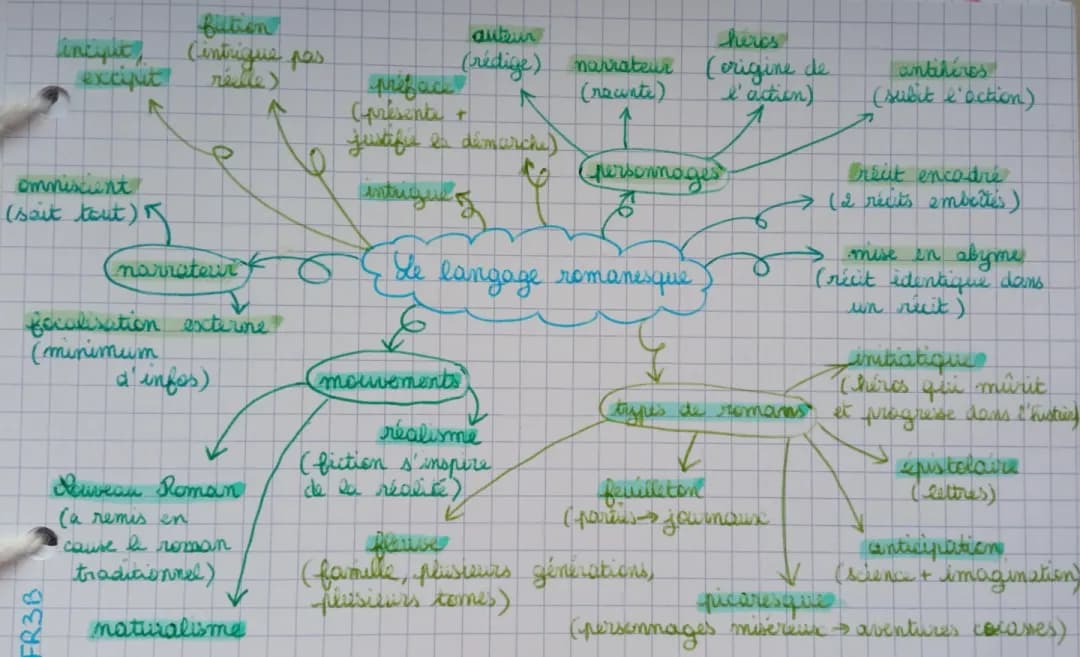 incipit,
excipit
fiction
(intrigue pas
réelle)
préface
(présente +
justifie la démarche)
auteur
(rédige)
narrateur
(raconte)
héros
(origine de
l'action)
antihéros
(subit l'action)
personnages
intrigue
omniscient
(sait tout)
narrateur
focalisation externe
(minimum
d'infos)
Le langage romanesque
récit encadré
(2 récits emboîtés)
mise en abyme
(récit identique dans
un récit)
mouvements
réalisme
(fiction s'inspire
de la réalité)
Nouveau Roman
(a remis en
cause le roman
traditionnel)
naturalisme
types de romans
initiatique
(héros qui mûrit
et progresse dans l'histoire)
épistolaire
(lettres)
anticipation
(science + imagination)
picaresque
(personnages miséreux → aventures cocasses)
feuilleton
(parus → journaux
fleuve
(famille, plusieurs générations,
plusieurs tomes)
FR3B